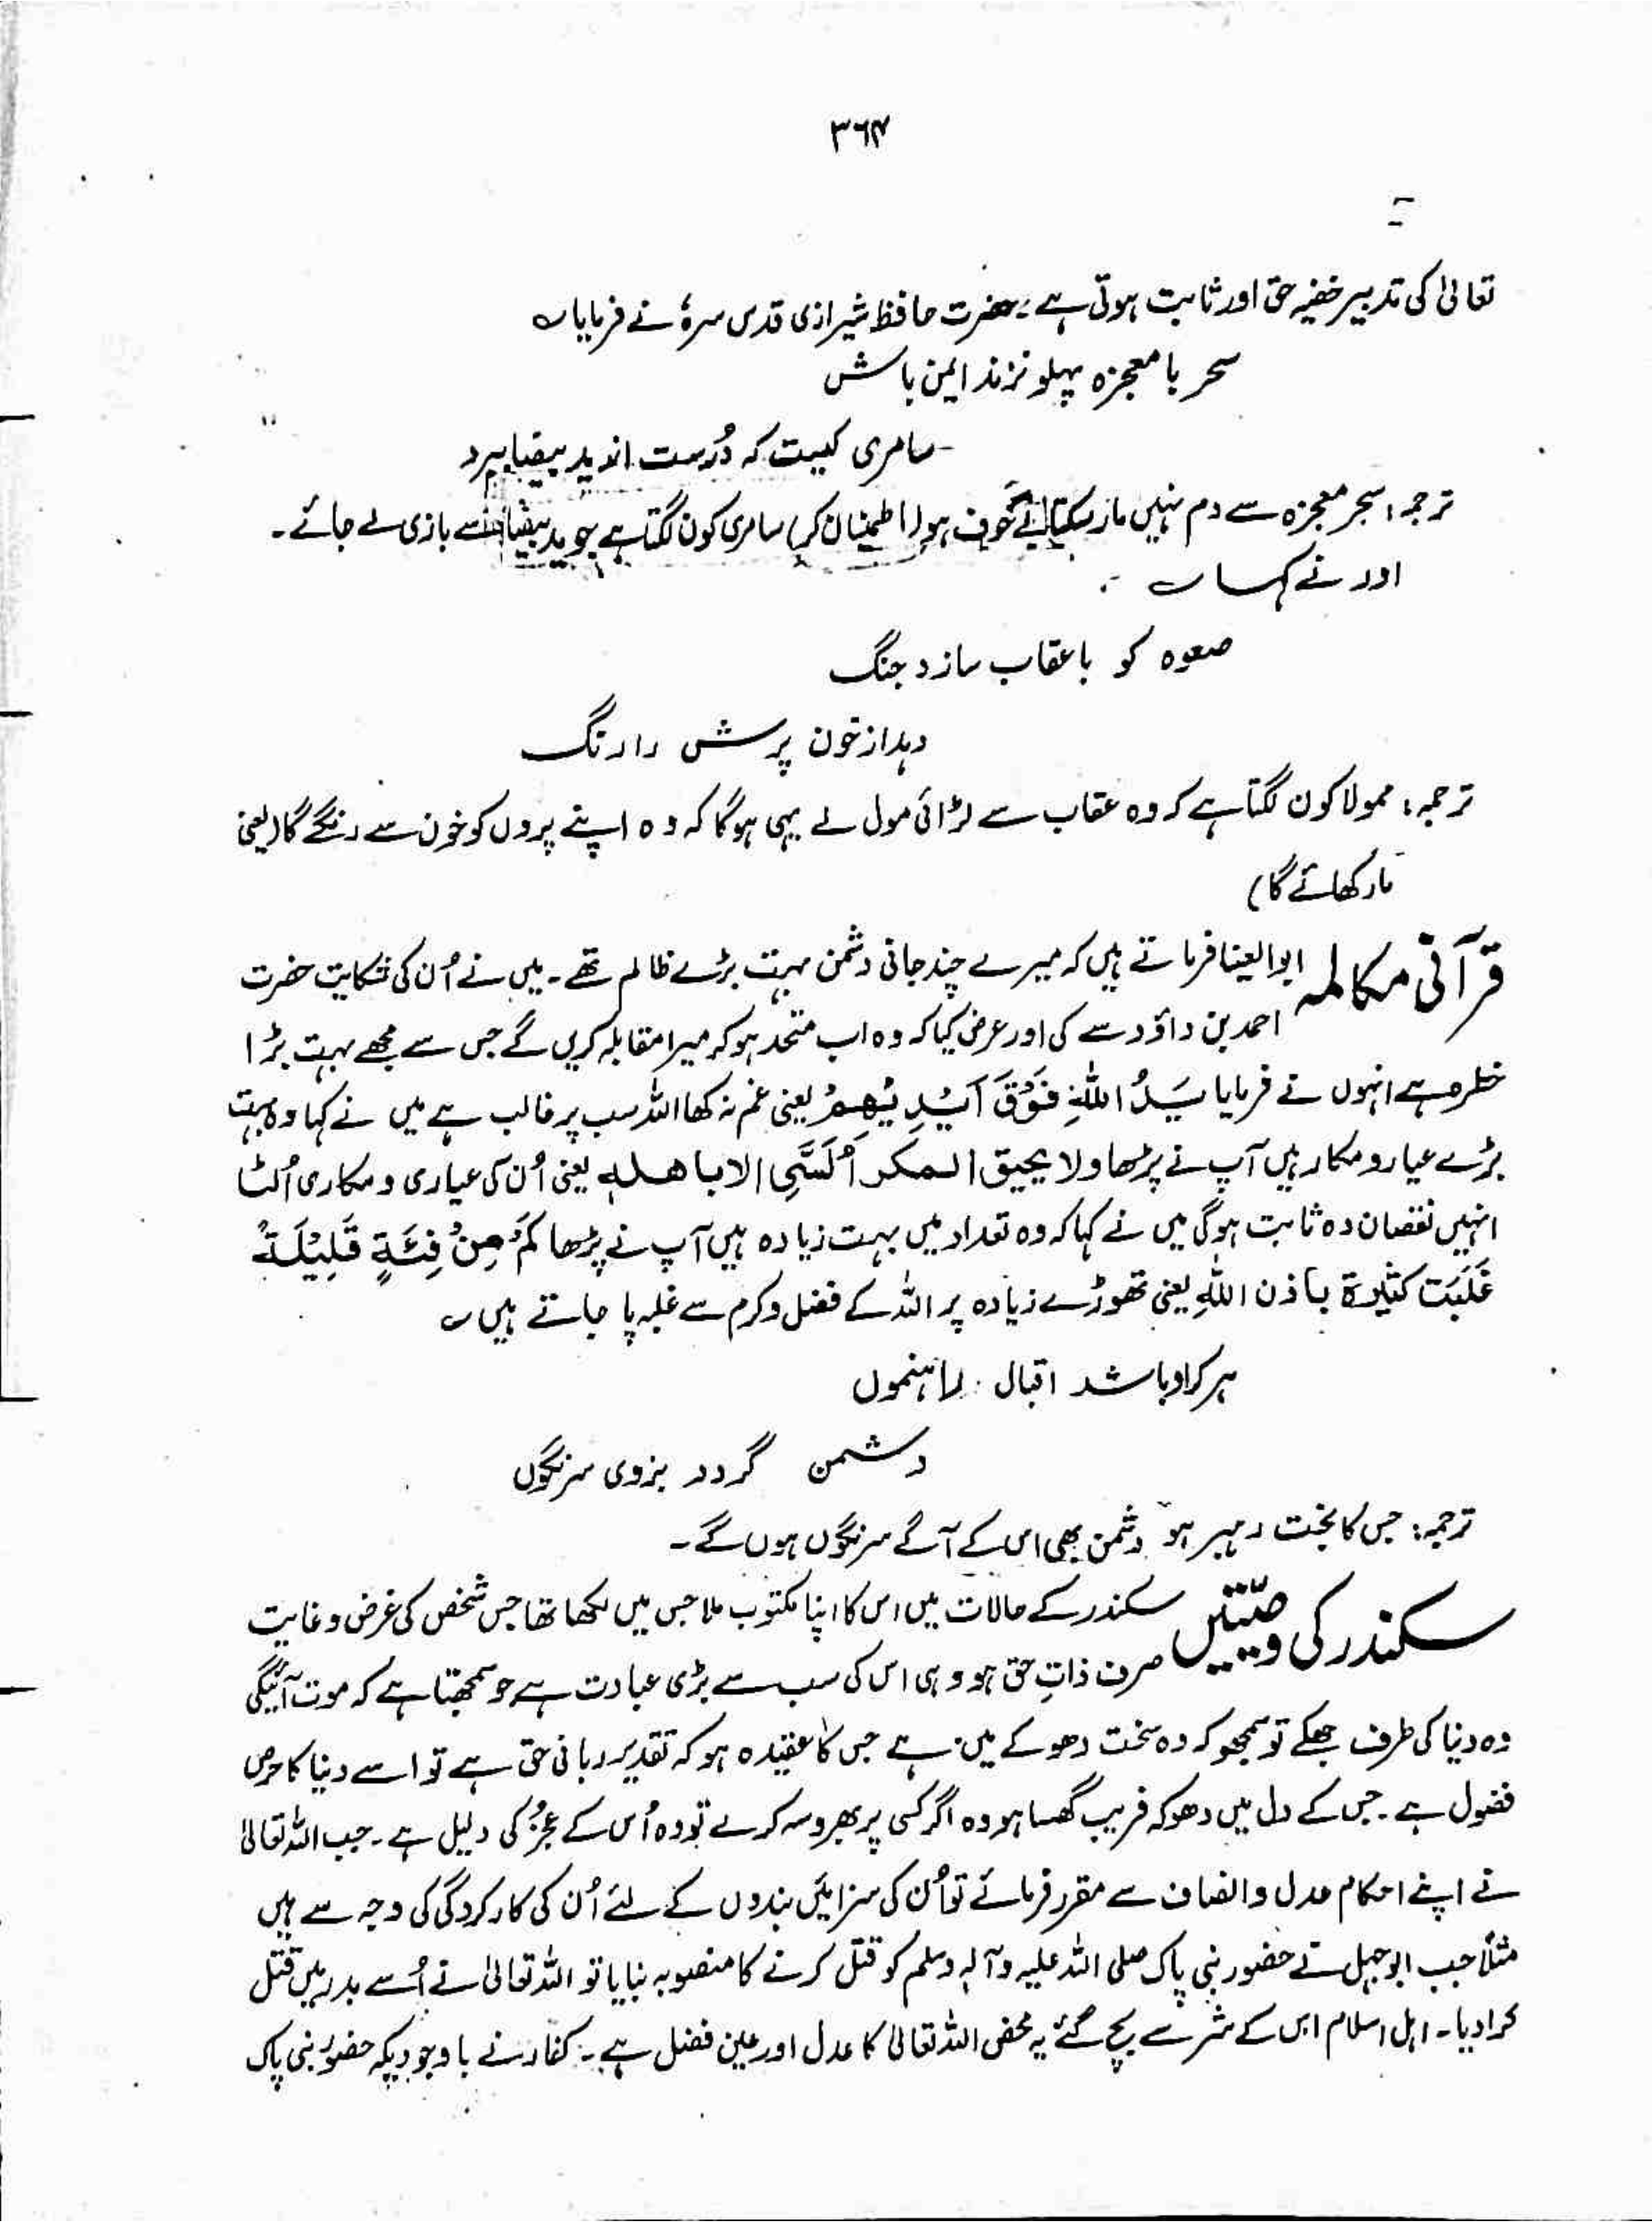 ۳۶۴
تعالیٰ کی تدبیر خفیہ حق اور ثابت ہوتی ہے۔ حضرت حافظ شیرازی قدس سرہٗ نے فرمایا ؎
سحر با معجزہ پہلو نزند ایمن باش
سامری کیست کہ دُرست اندید بیضا ببرد
ترجمہ: سحر معجزہ سے دم نہیں مار سکتا بے خوف ہو (اطمینان کر) سامری کون لگتا ہے جو ید بیضا سے بازی لے جائے۔
اور نے کہا ؎
صعوہ کو با عقاب سازد جنگ
دہد از خون پرش را رنگ
ترجمہ: ممولا کون لگتا ہے کہ وہ عقاب سے لڑائی مول لے یہی ہوگا کہ وہ اپنے پروں کو خون سے رنگے گا (یعنی
مار کھائے گا)
قرآنی مکالمہ ابوالعینا فرماتے ہیں کہ میرے چند جانی دشمن بہت بڑے ظالم تھے۔ میں نے اُن کی شکایت حضرت
احمد بن داؤد سے کی اور عرض کیا کہ وہ اب متحد ہو کر میرا مقابلہ کریں گے جس سے مجھے بہت بڑا
خطرہ ہے انہوں نے فرمایا یَدُ اللہِ فَوْقَ اَیْدِیْھِمْ یعنی غم نہ کھا اللہ سب پر غالب ہے میں نے کہا وہ بہت
بڑے عیار و مکار ہیں آپ نے پڑھا ولا یحیق المکر اُلسَّیِ الا باھلہ یعنی اُن کی عیاری و مکاری اُلٹا
انہیں نقصان دہ ثابت ہوگی میں نے کہا کہ وہ تعداد میں بہت زیادہ ہیں آپ نے پڑھا کَمْ مِنْ فِئَۃٍ قَلِیْلَۃٌ
غَلَبَت کثیرۃ باذن اللہِ یعنی تھوڑے زیادہ پر اللہ کے فضل و کرم سے غلبہ پا جاتے ہیں ؎
ہر کرا وباشد اقبال راہنموں
دشمن گردد بزوی سرنگوں
ترجمہ: جس کا بخت رہبر ہو دشمن بھی اس کے آگے سرنگوں ہوں گے۔
سکندر کی وصیّتیں سکندر کے حالات میں اس کا اپنا مکتوب ملا جس میں لکھا تھا جس شخص کی غرض و غایت
صرف ذاتِ حق ہو وہی اس کی سب سے بڑی عبادت ہے جو سمجھتا ہے کہ موت آئیگی
وہ دنیا کی طرف جھکے تو سمجھو کہ وہ سخت دھوکے میں ہے جس کا عقیدہ ہو کہ تقدیر ربانی حق ہے تو اسے دنیا کا حرص
فضول ہے۔ جس کے دل میں دھوکہ فریب گھسا ہو وہ اگر کسی پر بھروسہ کرے تو وہ اُس کے عجز کی دلیل ہے۔ جب اللہ تعالیٰ
نے اپنے احکام عدل و انصاف سے مقرر فرمائے تو اُن کی سزائیں بندوں کے لئے اُن کی کارکردگی کی وجہ سے ہیں
مثلاً جب ابوجہل نے حضور نبی پاک صلی اللہ علیہ وآلہٖ وسلم کو قتل کرنے کا منصوبہ بنایا تو اللہ تعالیٰ نے اُسے بدر میں قتل
کرا دیا۔ اہل اسلام اس کے شر سے بچ گئے یہ محض اللہ تعالیٰ کا عدل اور عین فضل ہے۔ کفار نے باوجودیکہ حضور نبی پاک